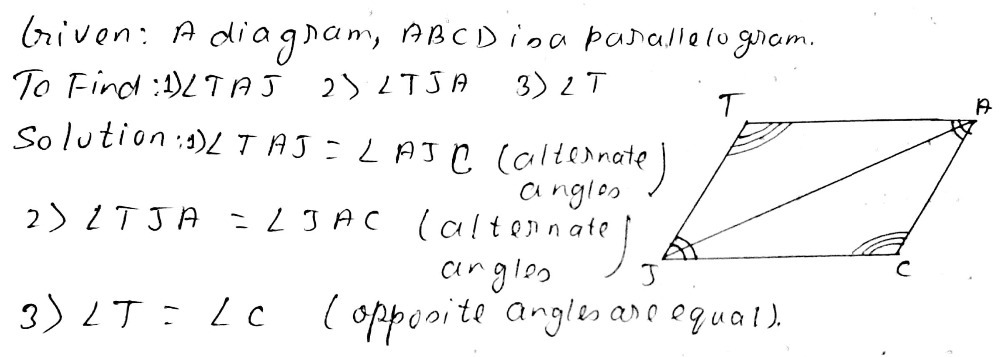 Given: A diagram, ABCD is a parallelogram.
To Find :1)∠TAJ 2) ∠TJA 3) ∠T
Solution :1)∠TAJ = ∠AJC (alternate angles)
2) ∠TJA = ∠JAC (alternate angles)
3) ∠T = ∠C (opposite angles are equal).
T
A
J
C